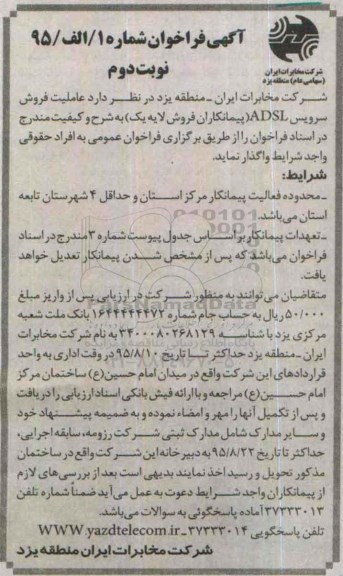 آگهی فراخوان شماره ۱/الف/۹۵
نوبت دوم
شرکت مخابرات ایران
(سهامی عام) منطقه یزد
شرکت مخابرات ایران ـ منطقه یزد در نظر دارد عاملیت فروش
سرویس ADSL(پیمانکاران فروش لایه یک) به شرح و کیفیت مندرج
در اسناد فراخوان را از طریق برگزاری فراخوان عمومی به افراد حقوقی
واجد شرایط واگذار نماید.
شرایط:
ـ محدوده فعالیت پیمانکار مرکز استان و حداقل ۴ شهرستان تابعه
استان می‌باشد.
ـ تعهدات پیمانکار بر اساس جدول پیوست شماره ۳ مندرج در اسناد
فراخوان می‌باشد که پس از مشخص شدن پیمانکار تعدیل خواهد
یافت.
متقاضیان می‌توانند به منظور شرکت در ارزیابی پس از واریز مبلغ
۵۰/۰۰۰ ریال به حساب جام شماره ۱۶۴۴۴۴۴۴۷۲ بانک ملت شعبه
مرکزی یزد با شناسه ۳۴۰۰۰۸۰۲۶۸۱۲۹ به نام شرکت مخابرات
ایران ـ منطقه یزد حداکثر تا تاریخ ۹۵/۸/۱۰ در وقت اداری به واحد
قراردادهای این شرکت واقع در میدان امام حسین(ع) ساختمان مرکز
امام حسین(ع) مراجعه و با ارائه فیش بانکی اسناد ارزیابی را دریافت
و پس از تکمیل آنها را مهر و امضاء نموده و به ضمیمه پیشنهاد خود
و سایر مدارک شامل مدارک ثبتی شرکت رزومه، سابقه اجرایی،
حداکثر تا تاریخ ۹۵/۸/۲۲ به دبیرخانه این شرکت واقع در ساختمان
مذکور تحویل و رسید اخذ نمایند بدیهی است بعد از بررسی‌های لازم
از پیمانکاران واجد شرایط دعوت به عمل می‌آید ضمناً شماره تلفن
۳۷۳۳۳۰۱۳ آماده پاسخگوئی به سوالات می‌باشد.
تلفن پاسخگویی ۳۷۳۳۳۰۱۴ ـ WWW.yazdtelecom.ir
شرکت مخابرات ایران منطقه یزد